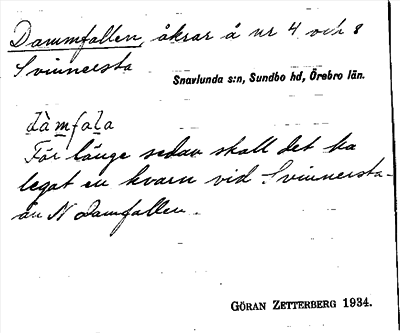 Dammfallen, åkrar å nr 4 och 8
Svinnersta
Snavlunda s:n, Sundbo hd, Örebro län.
dàmfala
För länge sedan skall det ha
legat en kvarn vid Svinnersta-
ån N Damfallen.
GÖRAN ZETTERBERG 1934.